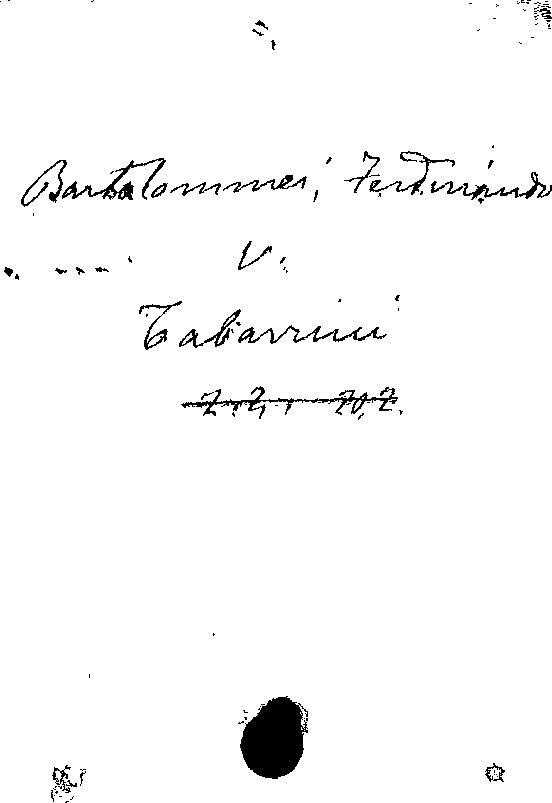 Bartolommei, Ferdinando
V.
Tabarrini